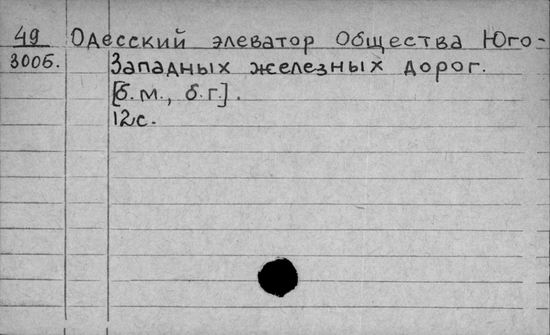 49 Одесский элеватор Общества Юго-
3006. Западных железных дорог.
[б.м., б.г.].
12с.